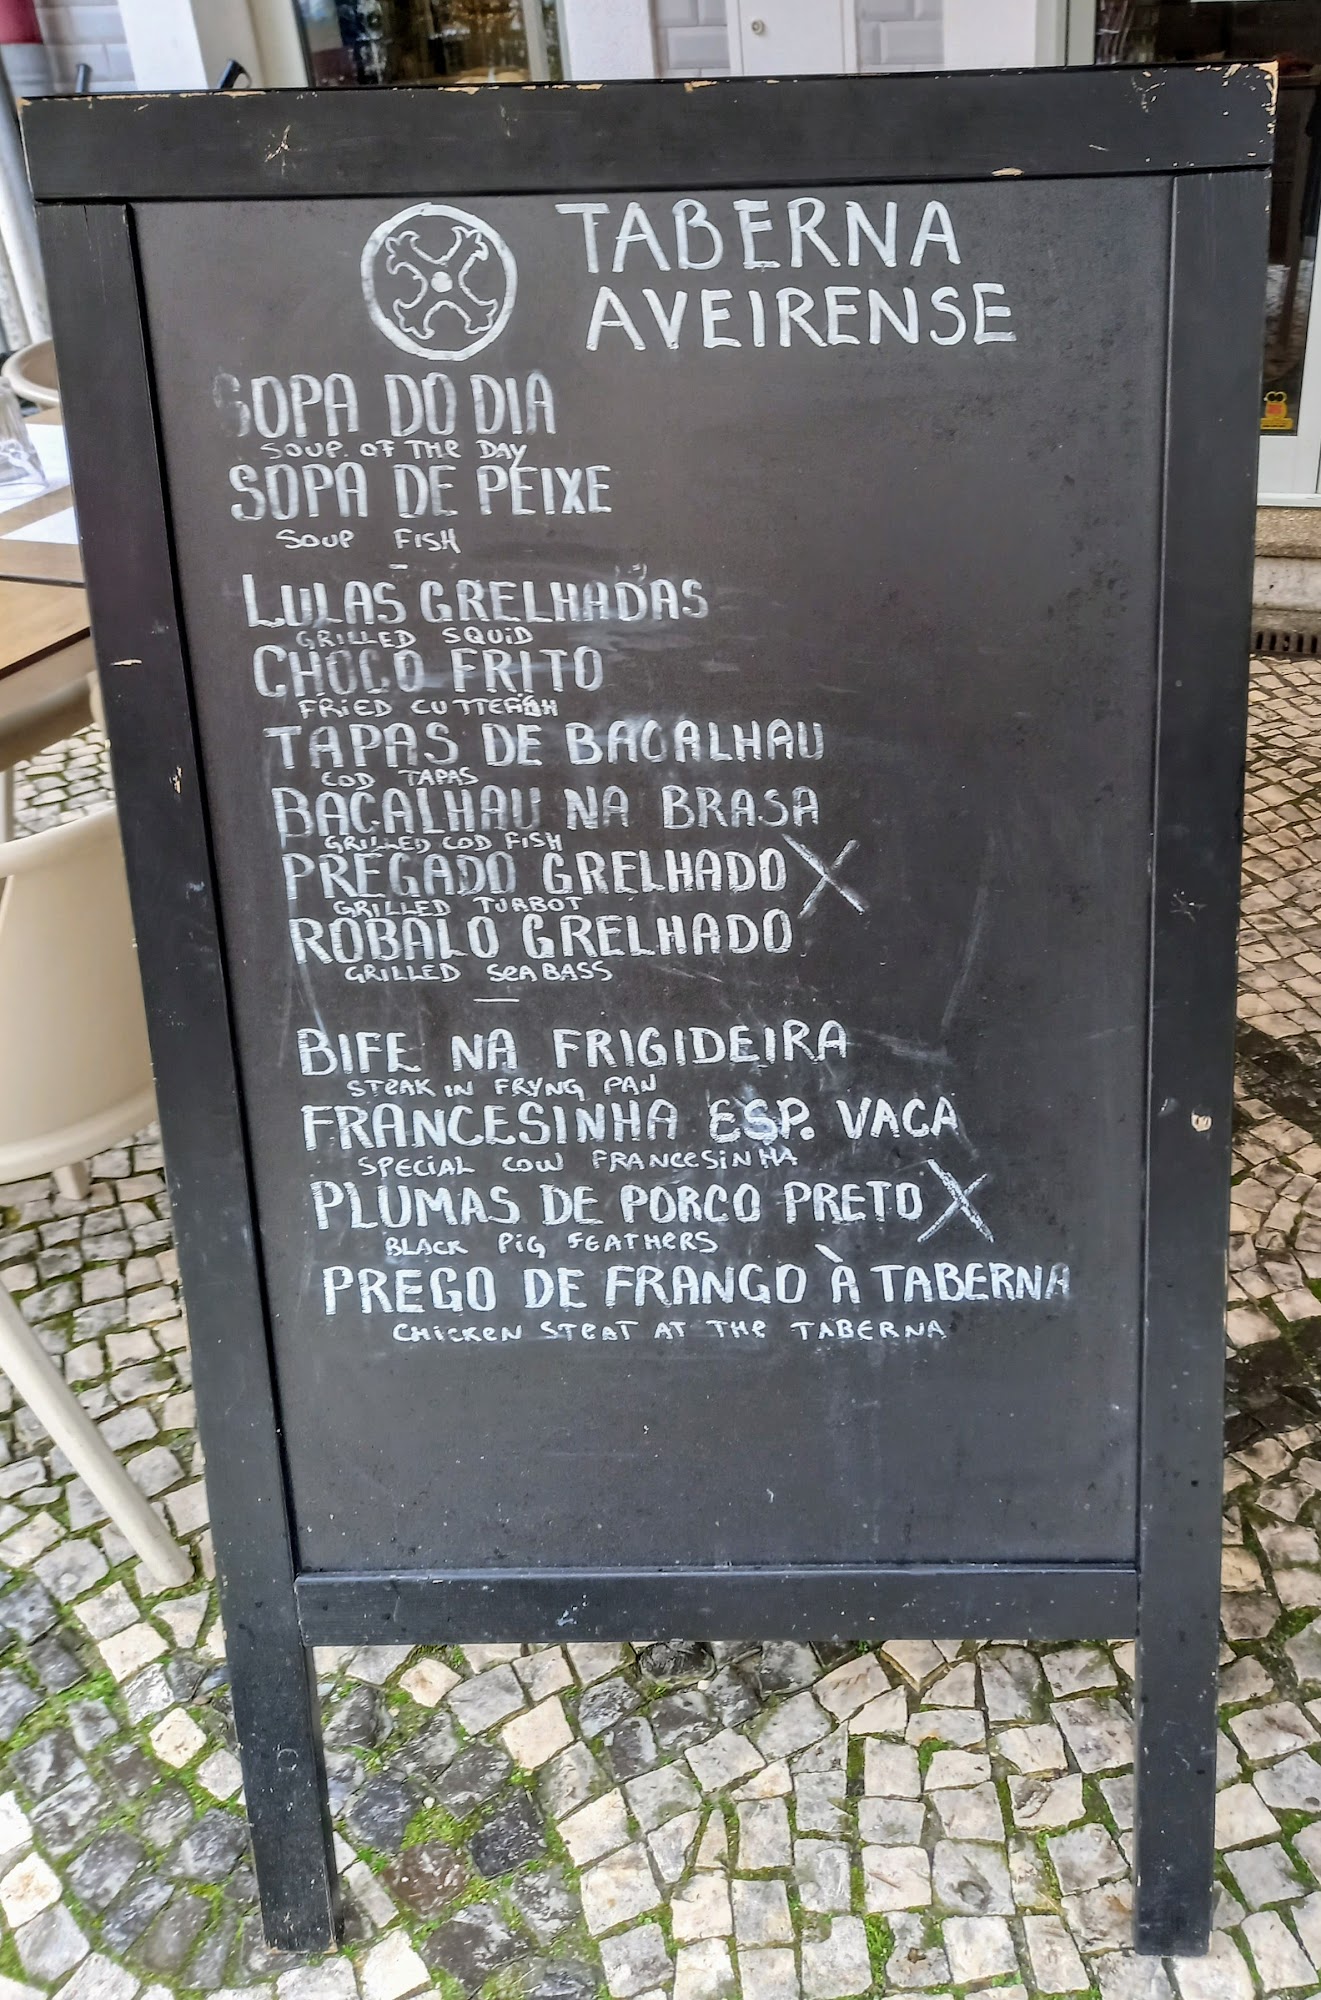 TABERNA
AVEIRENSE
SOPA DO DIA
SOUP. OF THE DAY
SOPA DE PEIXE
SOUP FISH
LULAS GRELHADAS
GRILLED SQUID
CHOCO FRITO
FRIED CUTTEFISH
TAPAS DE BACALHAU
COD TAPAS
BACALHAU NA BRASA
GRILLED COD FISH
PREGADO GRELHADO X
GRILLED TURBOT
ROBALO GRELHADO
GRILLED SEA BASS
BIFE NA FRIGIDEIRA
STEAK IN FRYNG PAN
FRANCESINHA ESP. VACA
SPECIAL COW FRANCESINHA
PLUMAS DE PORCO PRETO X
BLACK PIG FEATHERS
PREGO DE FRANGO À TABERNA
CHICKEN STEAT AT THE TABERNA